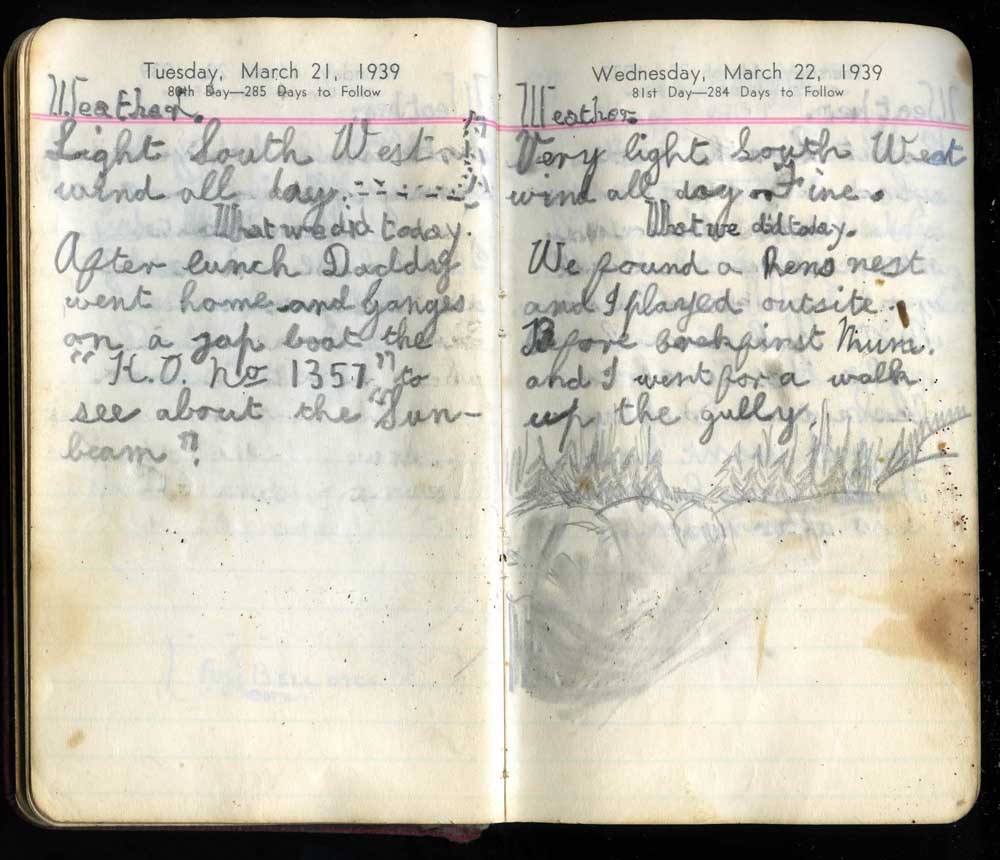 Tuesday, March 21, 1939
80th Day—285 Days to Follow
Weather.
Light South West
wind all day.
What we did today.
After lunch Daddy
went home and Ganges
on a jap boat the
"K.O. No 1357" to
see about the "Sun-
beam".
Wednesday, March 22, 1939
81st Day—284 Days to Follow
Weather.
Very light South West
wind all day. Fine.
What we did today.
We found a hens nest
and I played outsite.
Before breckfinst Mum.
and I went for a walk
up the gully.